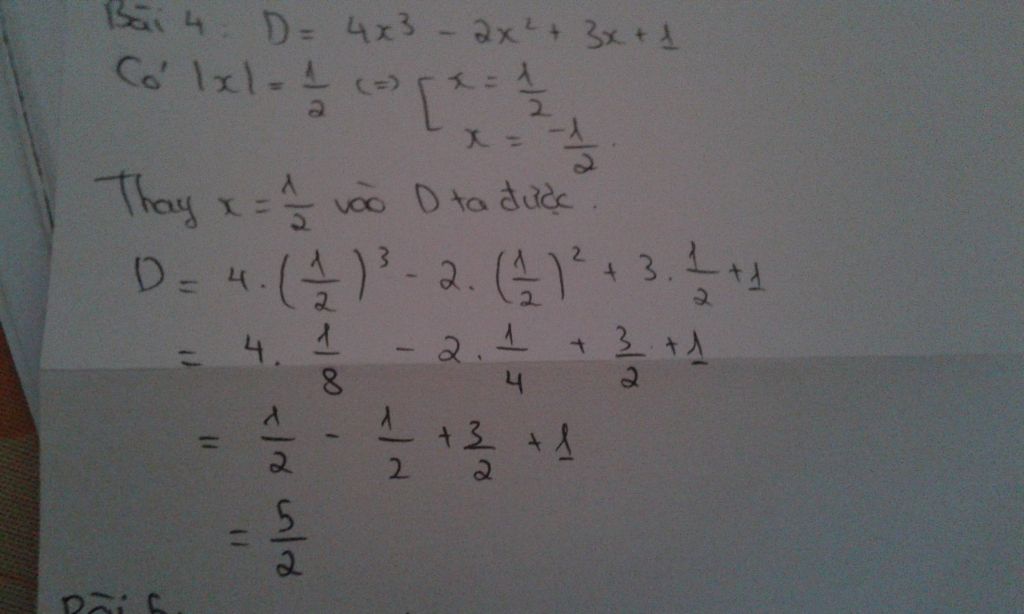 Bài 4: D = 4x³ - 2x² + 3x + 1
Có |x| = 1/2 <=> [ x = 1/2
x = -1/2.
Thay x = 1/2 vào D ta được.
D = 4.(1/2)³ - 2.(1/2)² + 3.1/2 + 1
= 4.1/8 - 2.1/4 + 3/2 + 1
= 1/2 - 1/2 + 3/2 + 1
= 5/2
Bài 5